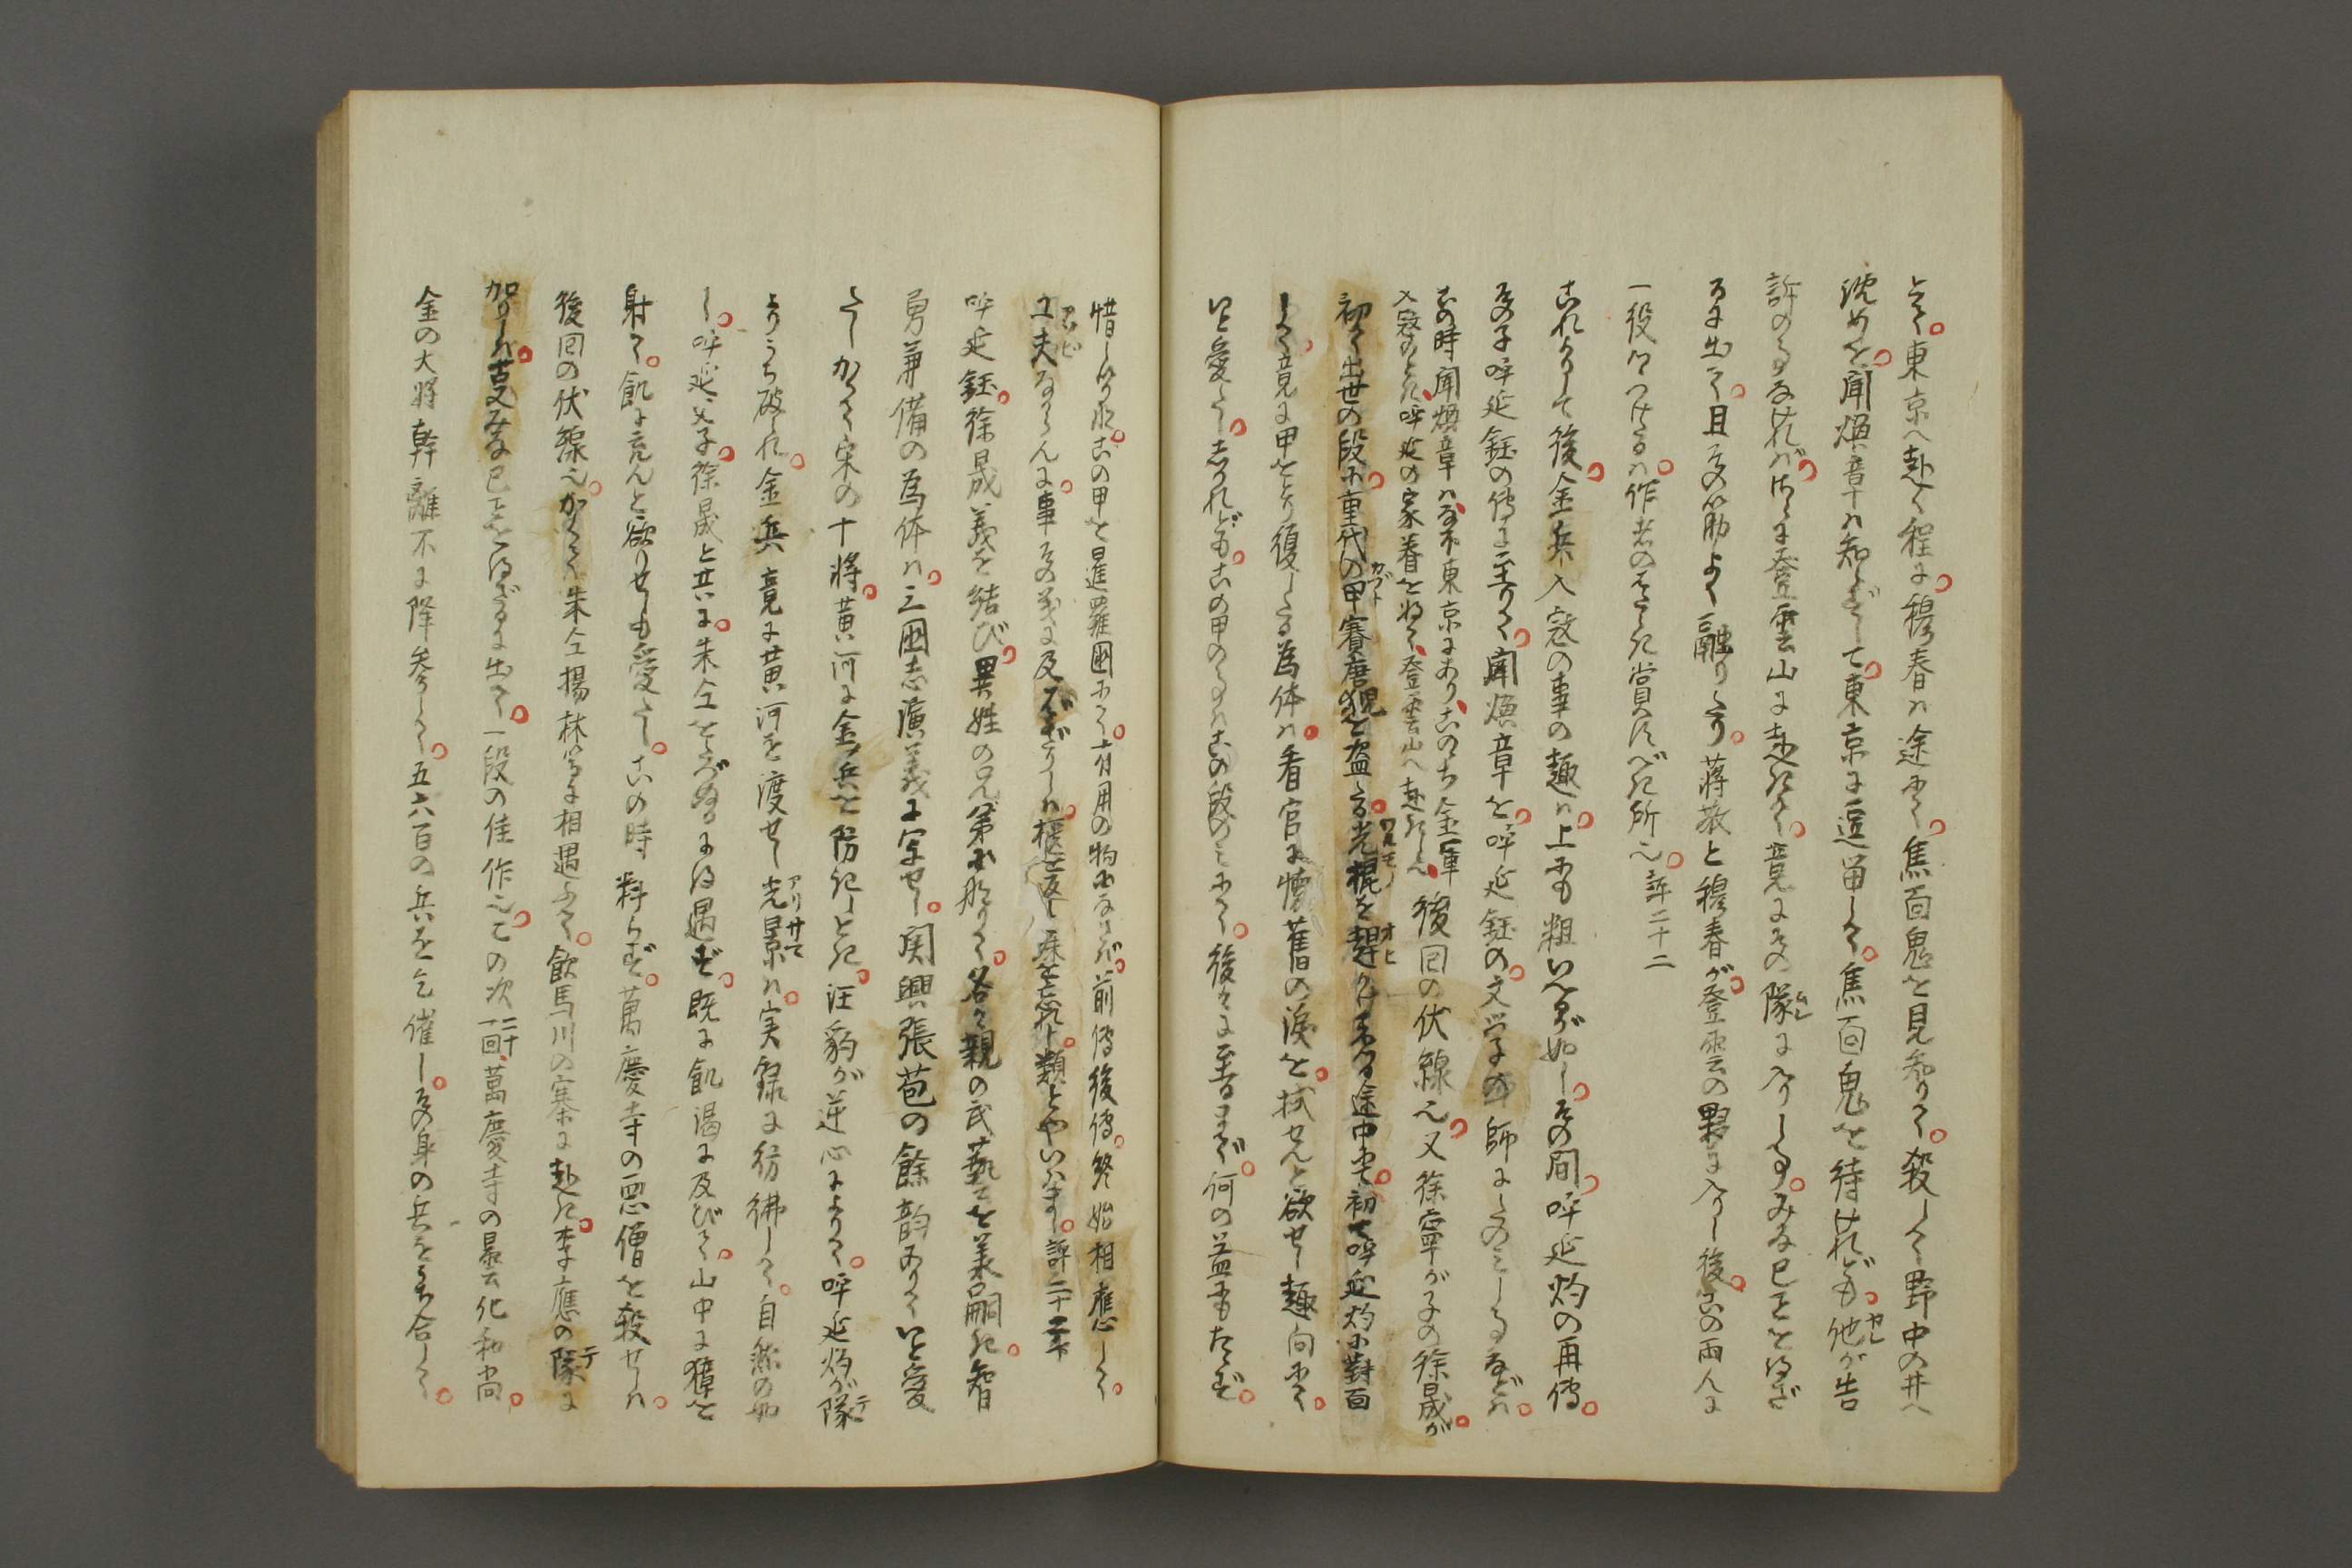 とく東京へ赴く程に穆春は途にて焦面鬼を見参りて殺して野中の井へ
沈めを聞煥章は知らずして東京に逗留して焦面鬼を待けれども他が告
訴のるなければ登雲山に赴きて竟にその隊に入りしるみな已ことを得ざ
るに出て且その筋よく融りたり蒋敬と穆春が登雲の夥に入りし後この両人に
一役つけたるは作者のはたらき賞すべき所也評二十二
これよりして後金兵入寇の事の趣は上にも粗いへるが如しその間呼延灼の再傳
その子呼延鈺の傳に至りて聞煥章を呼延鈺の文学の師にたのみしるなどは
この時聞煥章はなほ東京にありこのち金軍
入寇のとき呼延の家眷をねて登雲山へ赴きし也後回の伏線也又徐寧が子の徐晟が
初て出世の段に重代の甲賽唐猊を盗たる光棍を趕かけ来る途中にて初て呼延灼に對面
して竟に甲をとり復したる為体は看官に懐舊の涙を拭せんと欲せし趣向にて
いと愛たししかれどもこの甲のるはこの段のみにて後々に至るまで何の益もたたず
惜しむべしこの甲を暹羅國にて有用の物になさば前傳後傳終始相應して
工夫ならんに事その義に及ばざりしは根に返し珠を忘れし類とやいはまし評二十二下
呼延鈺徐晟義を結び異姓の兄弟に那りて各々親の武藝を美嗣ぎ智
勇兼備の為体は三國志演義に写せし関興張苞の餘韵ありていと愛
たしかくて宋の十将黄河に金兵を防ぎしとき汪豹が逆心によりて呼延灼が隊
よりうち破られ金兵竟に黄河を渡せし光景は実録に彷彿して自然の如
し呼延父子徐晟と共に朱仝をたづぬるに得遇ず既に飢渇に及びて山中に獐を
射て飢に充んと欲りせしも愛たしこの時料らず萬慶寺の悪僧を殺せしは
後回の伏線也かくて朱仝楊林等に相遇ふて飲馬川の寨に赴き李應の隊に
加りしは萛みな已ことを得ざるに出て一段の佳作也この次二十一回萬慶寺の曇化和尚
金の大将幹離不に降参して五六百の兵を乞催しその身の兵をもち合して